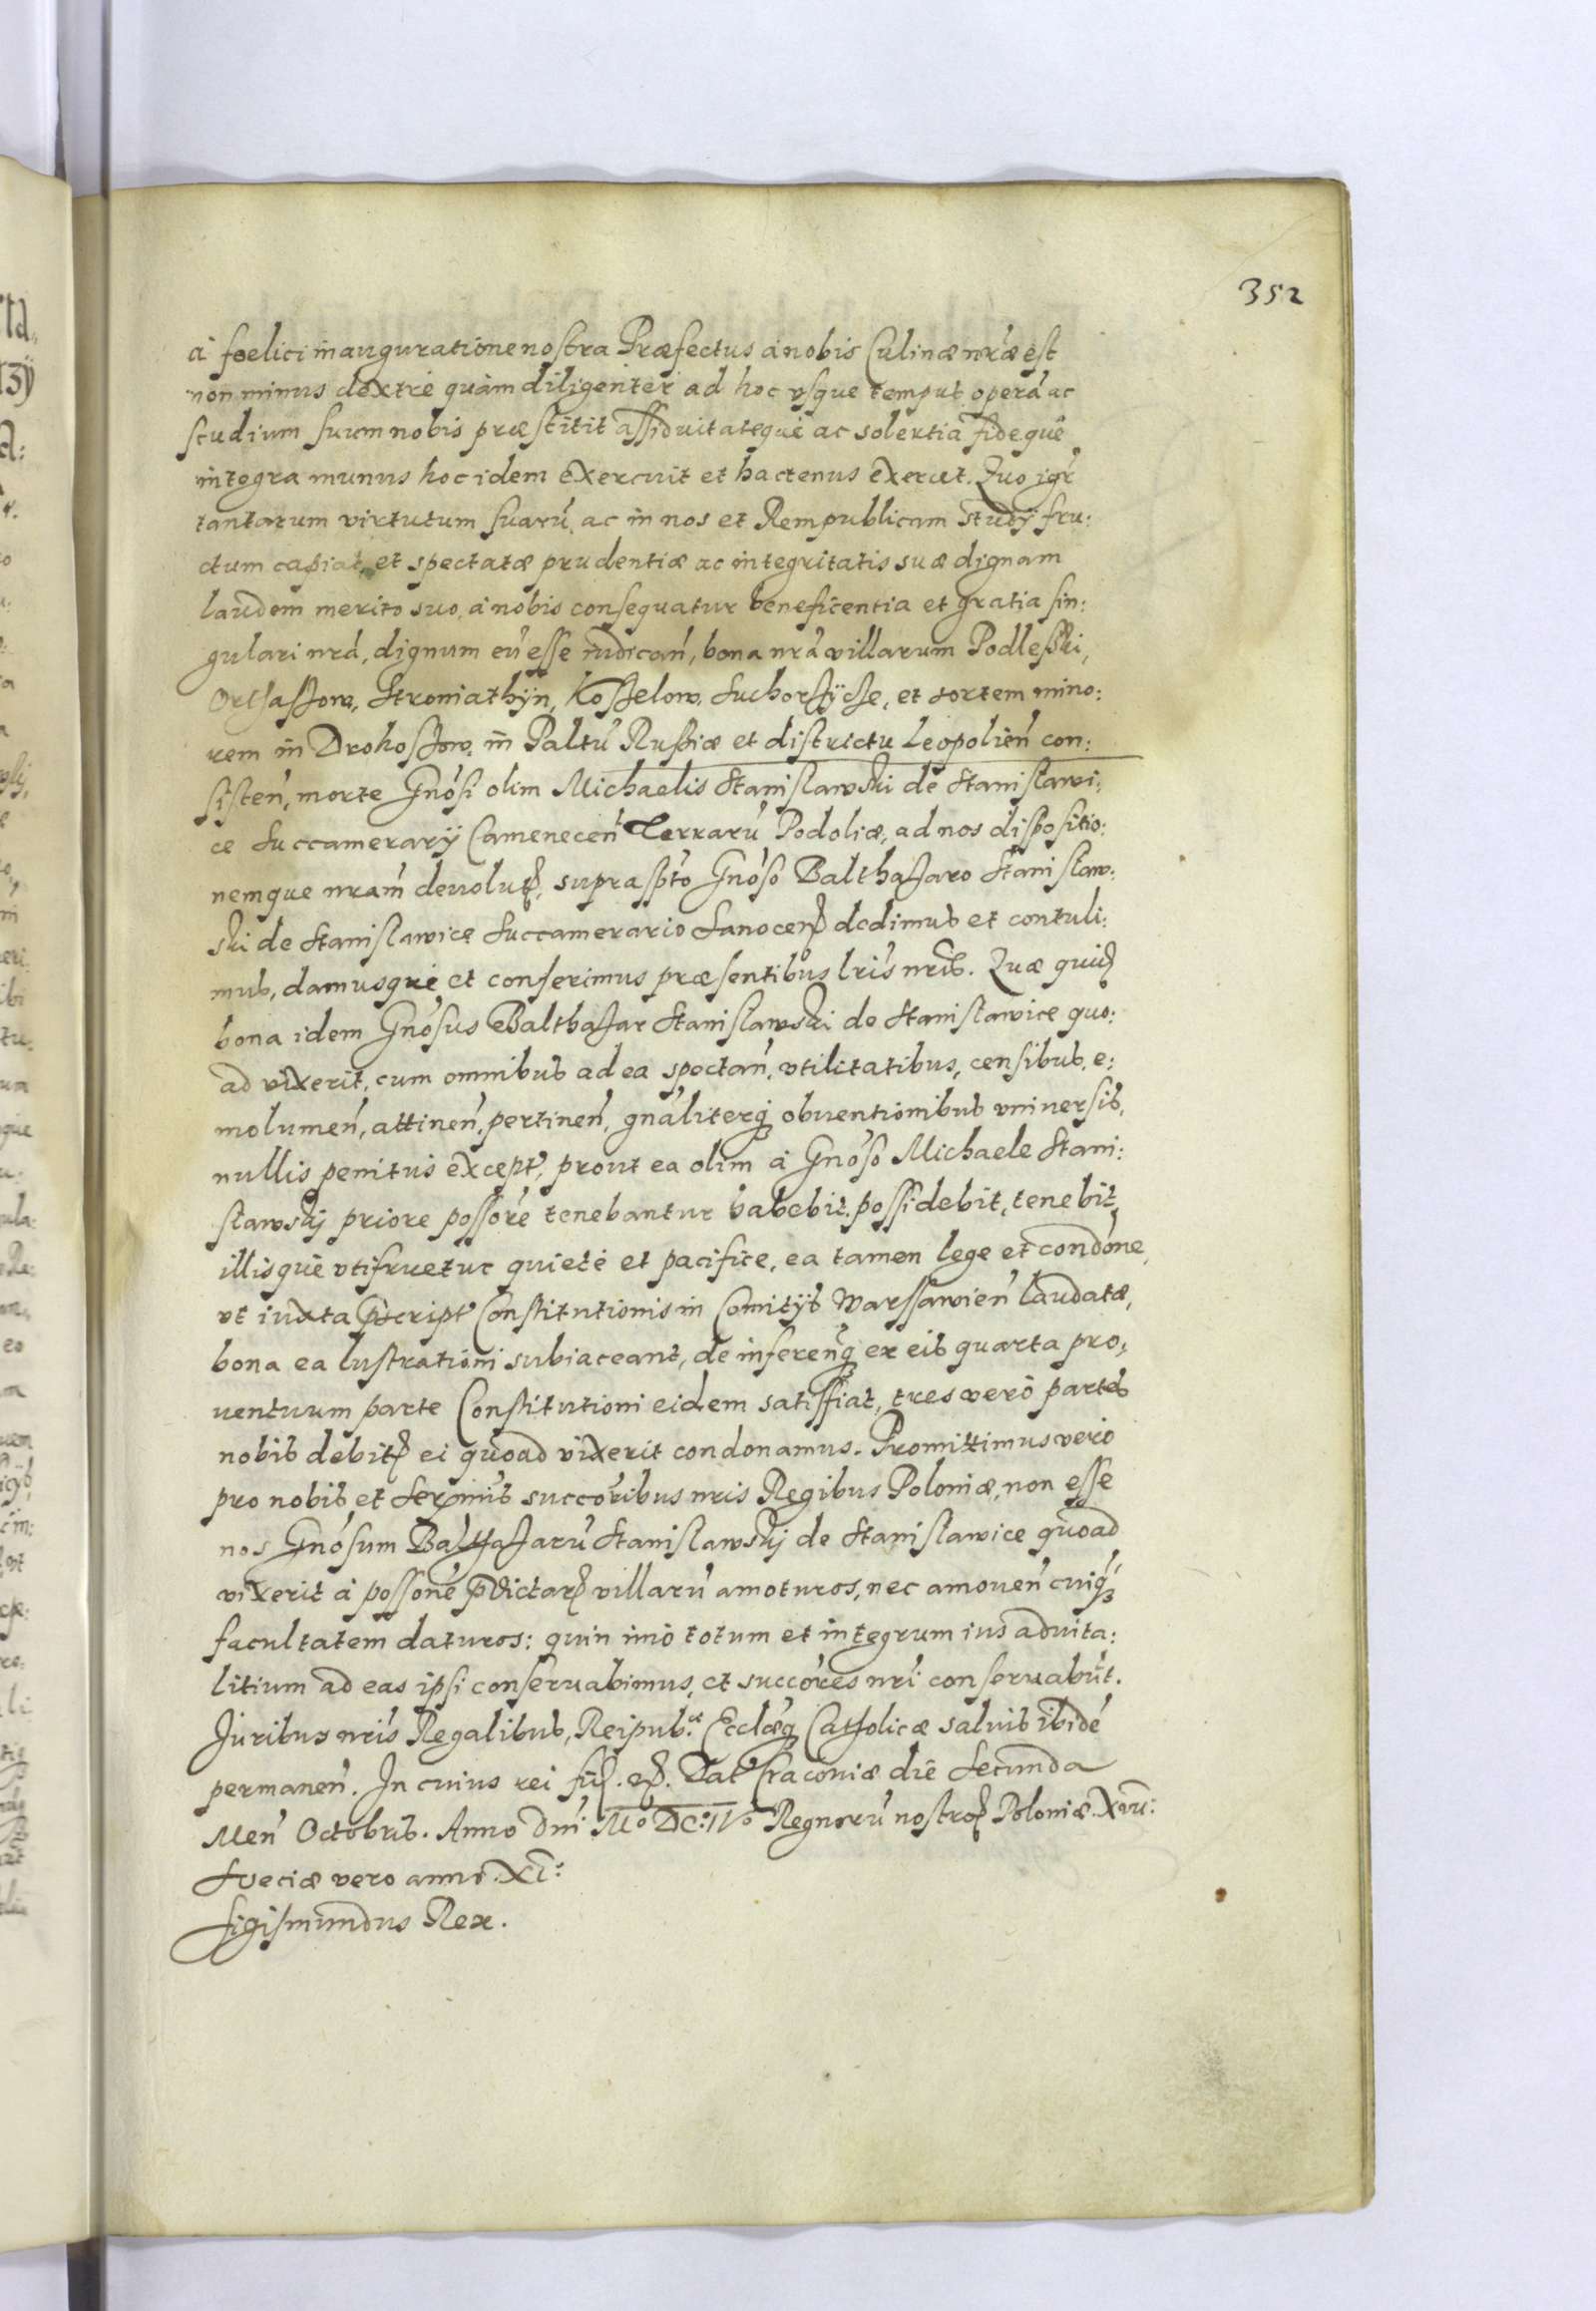 352
à foelici inauguratione nostra Præfectus à nobis Culinæ nr̃æ est
non minus dextrè quàm diligenter ad hoc vsque tempus operã ac
studium suum nobis præstitit assiduitateque ac solertia fideque
integra munus hoc idem exercuit et hactenus exercet. Quo igr̃
tantarum virtutum suarũ ac in nos et Rempublicam studÿ fru:
ctum capiat, et spectatæ prudentiæ ac integritatis suæ dignam
laudem merito suo, à nobis consequatur beneficentia et gratia sin:
gulari nrã, dignum eũ esse iudicañ, bona nrã villarum Podleßki,
Orthaszow, Stroniathÿn, Koszelow, Suchorszÿcze, et sortem mino:
rem in Drohoszow, in Paltũ Rußiæ et districtu Leopolień con:
sisteñ, morte Gnõsi olim Michaelis Stanisławski de Stanisławi:
ce Succamerarÿ Camenecen̄ Terrarũ Podoliæ, ad nos dispositio:
nemque nram̃ deuolut̃, suprasptõ Gnõso Balthaszaro Stanisław:
ski de Stanisławice Succamerario Sanocen̄ dedimus et contuli:
mus, damusque et conferimus præsentibus lrĩs nrĩs. Quæ quid̃
bona idem Gnõsus Balthaszar Stanisławski de Stanisławice quo:
ad vixerit, cum omnibus ad ea spectañ, vtilitatibus, censibus, e:
molumeñ, attineñ, pertineñ, gnãliterq̃ obuentionibus vniuersis,
nullis penitus except̃, prout ea olim à Gnõso Michaele Stani:
sławskj priore possorẽ tenebantur habebit, possidebit, tenebit,
illisque vtifruetur quietè et pacificè, ea tamen lege et condõne,
vt iuxta p̃script̃ Constitutionis in Comitÿs Warssawień laudatæ,
bona ea lustrationi subiaceant, de inferen̄q̃ ex eis quarta pro:
uentuum parte Constitutioni eidem satisfiat, tres verò partes
nobis debit̃ ei quoad vixerit condonamus. Promittimus verò
pro nobis et Serẽnmis succoribus nris Regibus Poloniæ, non esse
nos Gnõsum Balthaszarũ Stanisławskj de Stanisławice quoad
vixerit à possonẽ p̃dictar̃ villarũ amoturos, nec amoueñ cuiq̃
facultatem daturos: quin imò totum et integrum ius aduita:
litium ad eas ipsi conseruabimus, et succorẽs nrĩ conseruabũt.
Juribus nrĩs Regalibus, Reipub.æ Ecclæq̃ Catholicæ saluis ibidẽ
permaneñ. In cuius rei fid̃. et̃. Dat̃ Cracouiæ die Secunda
Meñ Octobris. Anno dnĩ Mº DC: IVº Regnorũ nostror̃ Poloniæ. XVII:
Sueciæ vero anno XI:
Sigismundus Rex.